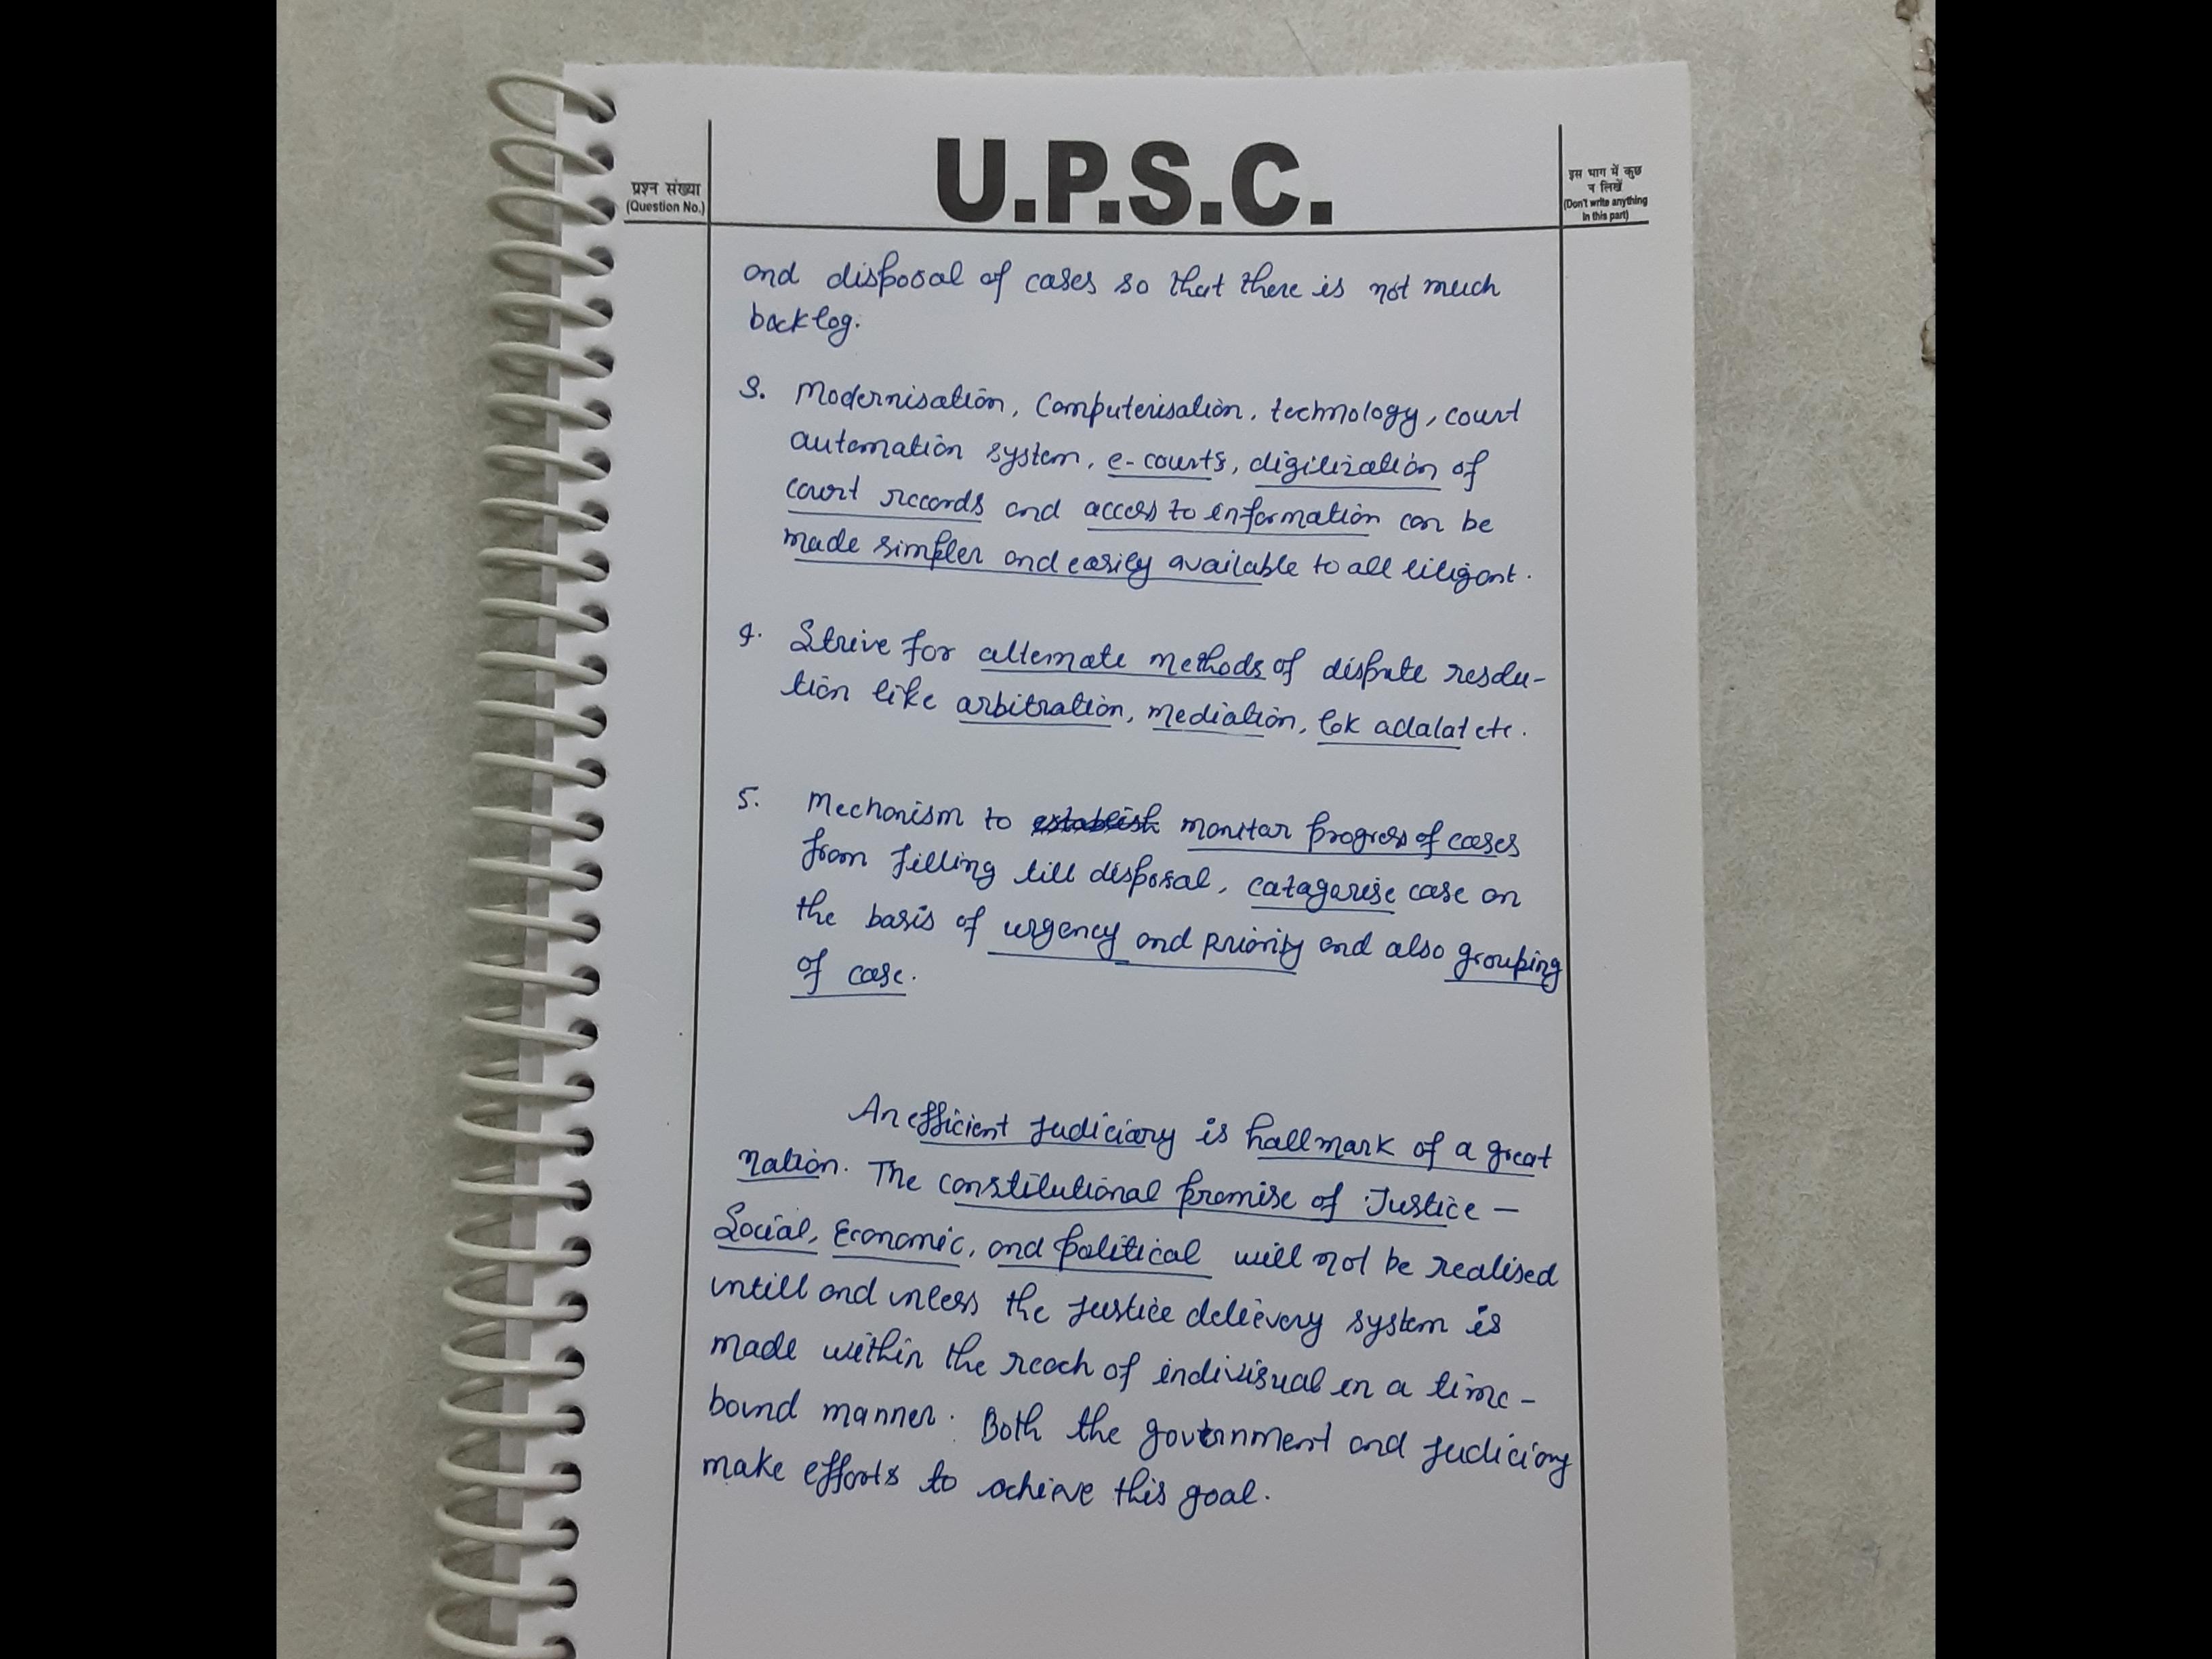 प्रश्न संख्या
(Question No.)
U.P.S.C.
इस भाग में कुछ
न लिखें
(Don't write anything
in this part)
and disposal of cases so that there is not much
backlog.
3. Modernisation, Computerisation, technology, court
automation system, e-courts, digitization of
court records and access to information can be
made simpler and easily available to all litigant.
4. Strive for alternate methods of dispute resolu-
tion like arbitration, mediation, lok adalat etc.
5. Mechanism to establish monitor progress of cases
from filling till disposal, catagorise case on
the basis of urgency and priority and also grouping
of case.
An efficient judiciary is hallmark of a great
nation. The constitutional promise of Justice –
Social, Economic, and political will not be realised
untill and unless the justice delievery system is
made within the reach of indivisual in a time-
bound manner. Both the government and judiciary
make efforts to achieve this goal.